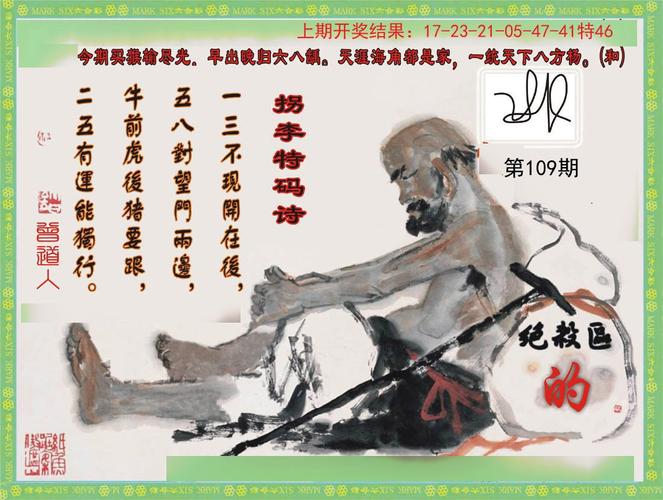 上期开奖结果：17-23-21-05-47-41特46
今期买猴输尽光，早出晚归六八龋。天涯海角都是家，一统天下八方杨。(和)
第109期
拐李特码诗
一三不现開在後，
五八對望門兩邊，
牛前虎後猪要跟，
二五有運能獨行。
曾道人
绝殺區
的
MARK SIX六合彩